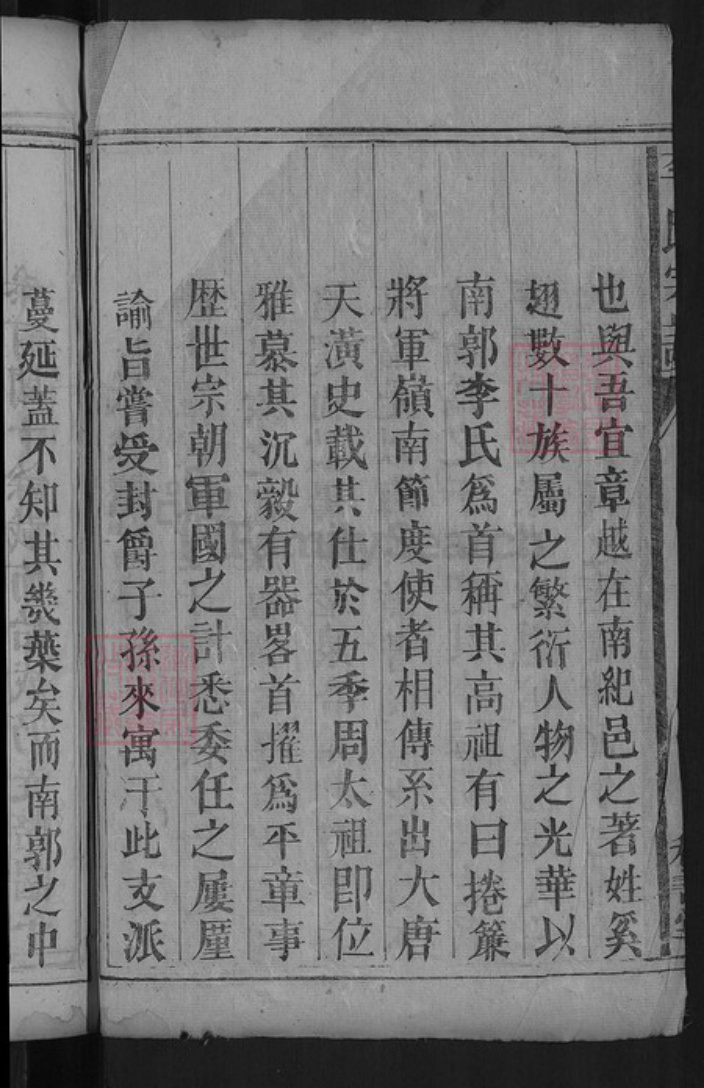 也與吾宜章越在南紀邑之著姓奚
翅數十族屬之繁衍人物之光華以
南郭李氏爲首稱其高祖有曰捲簾
將軍嶺南節度使者相傳系出大唐
天潢史載其仕於五季周太祖即位
雅慕其沉毅有器畧首擢爲平章事
歴世宗朝軍國之計悉委任之屢厪
諭旨嘗受封爵子孫來寓于此支派
蔓延蓋不知其幾葉矣而南郭之中